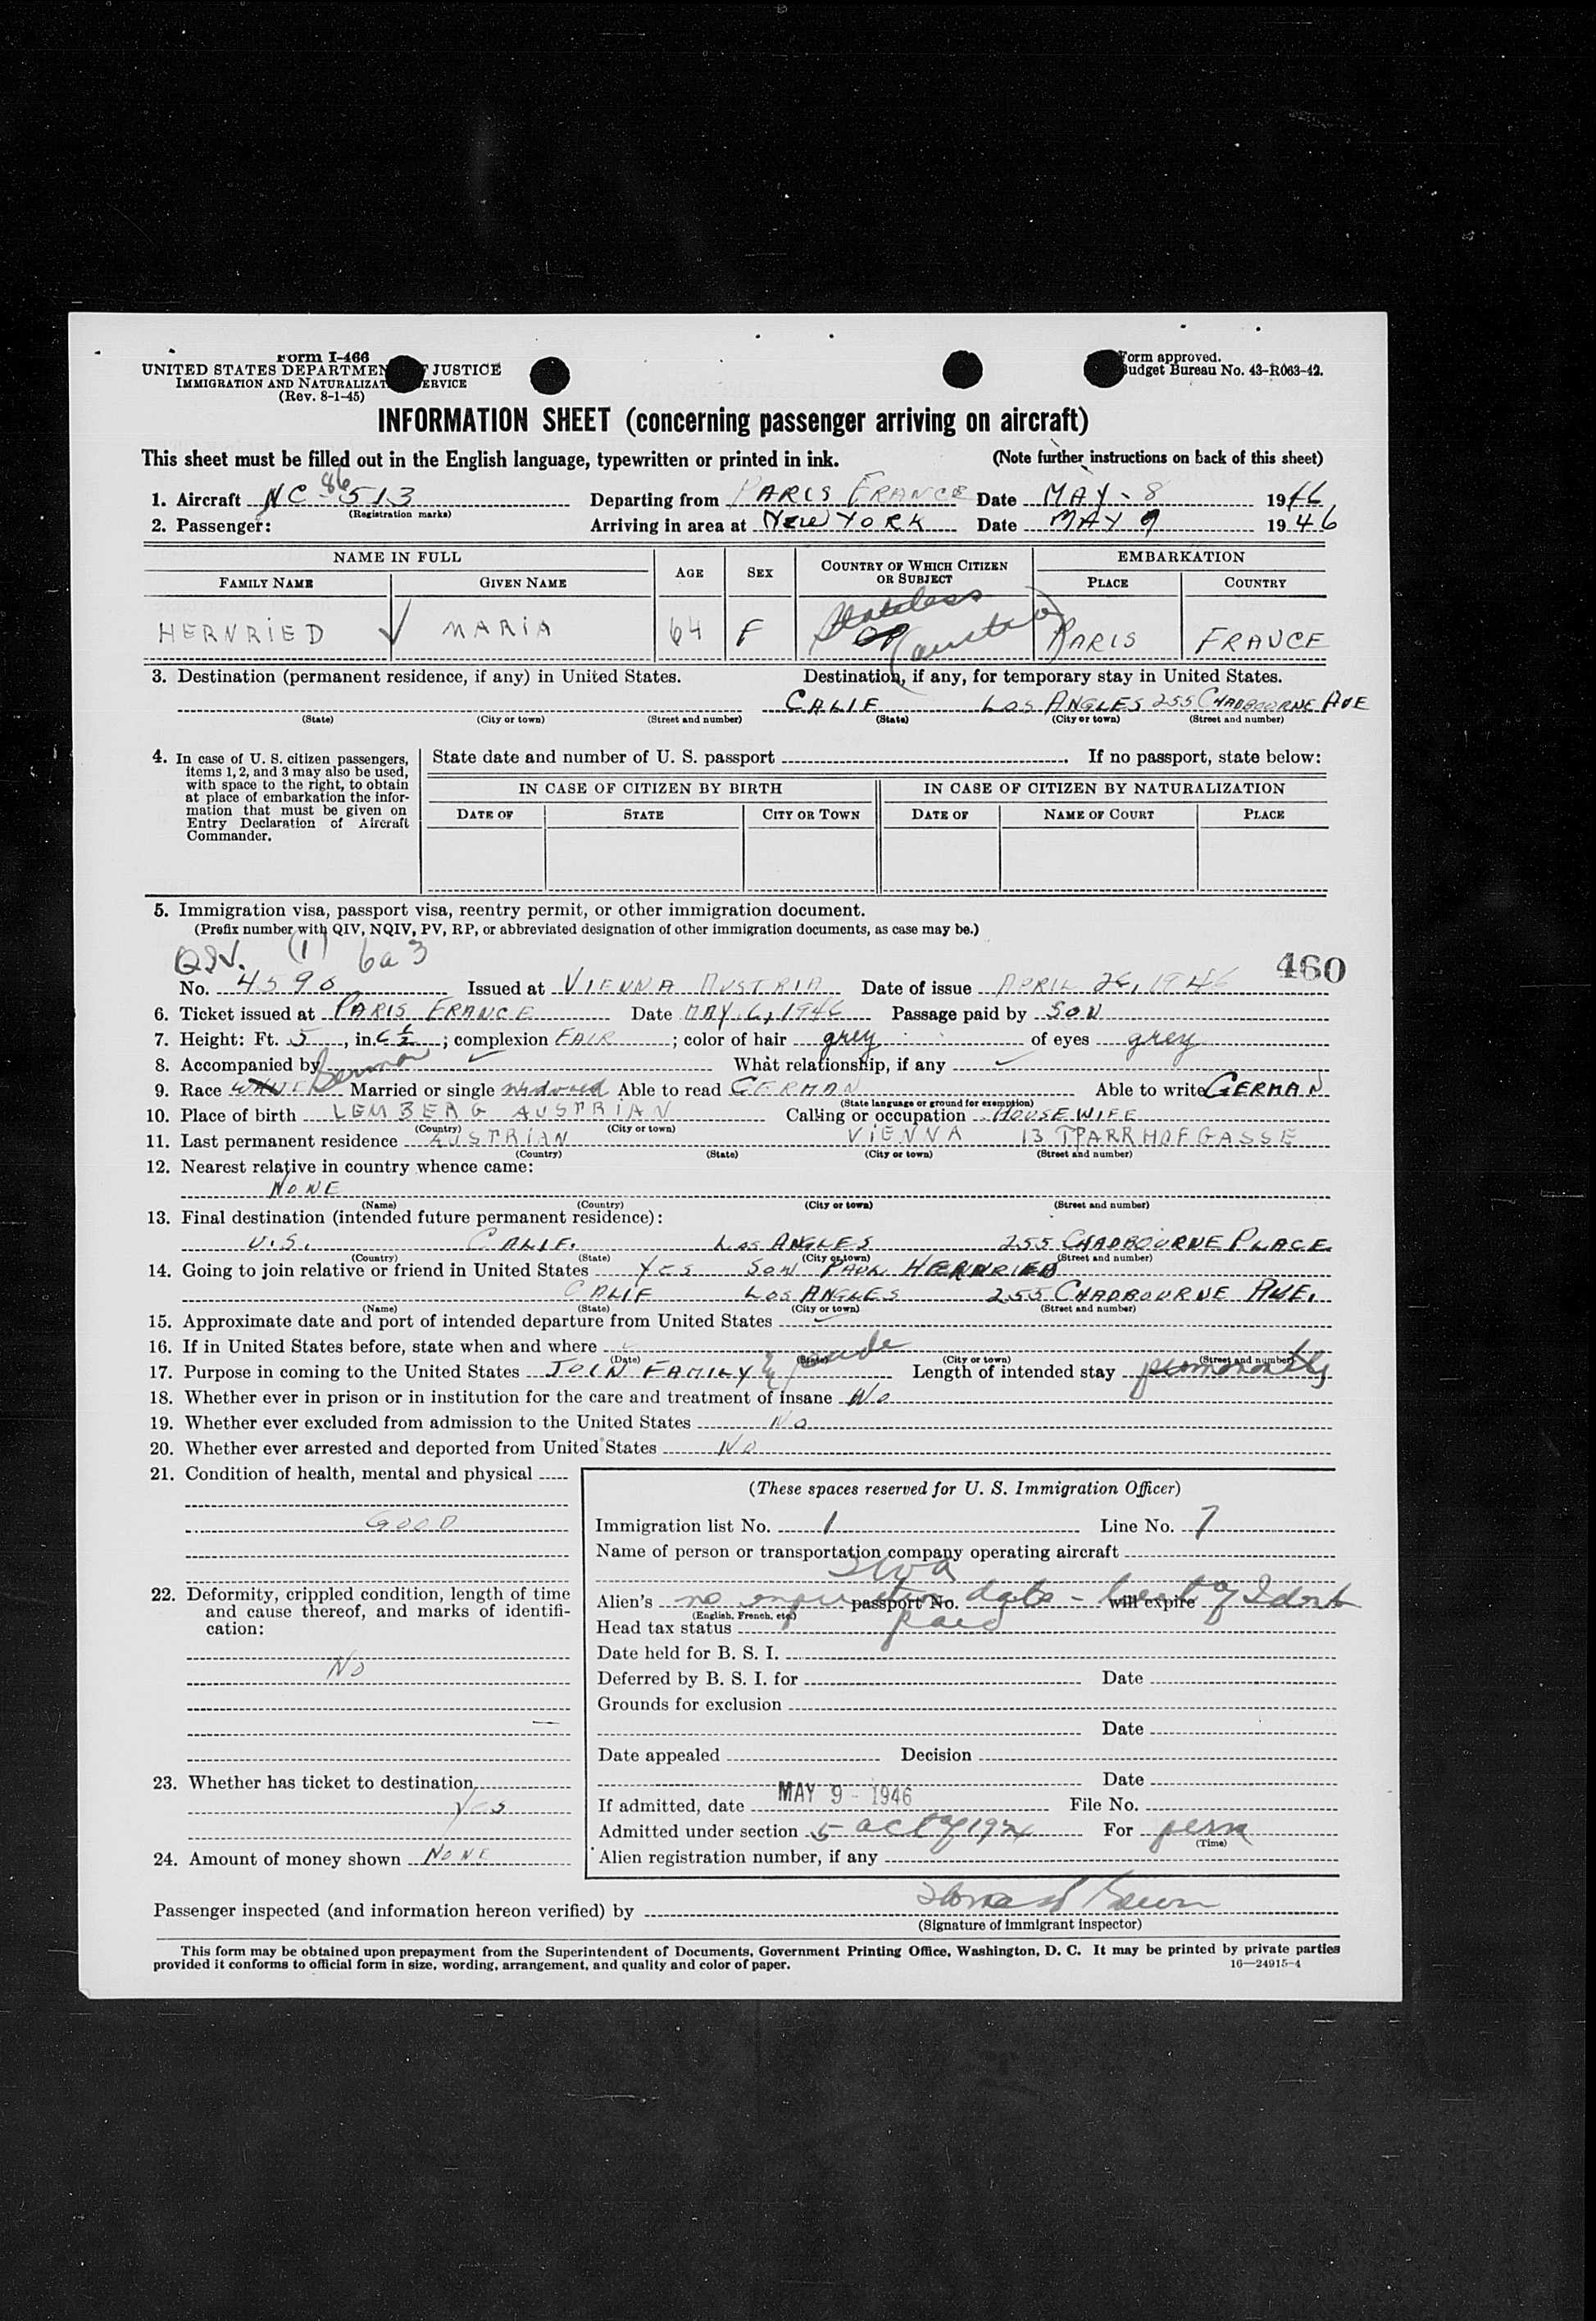 Form I-466
UNITED STATES DEPARTMENT OF JUSTICE
IMMIGRATION AND NATURALIZATION SERVICE
(Rev. 8-1-45)
Form approved.
Budget Bureau No. 43-R063-42.
INFORMATION SHEET (concerning passenger arriving on aircraft)
This sheet must be filled out in the English language, typewritten or printed in ink. (Note further instructions on back of this sheet)
1. Aircraft NC 86513 Departing from PARIS FRANCE Date MAY - 8 1946
(Registration marks)
2. Passenger: Arriving in area at NEW YORK Date MAY 9 1946
NAME IN FULL AGE SEX COUNTRY OF WHICH CITIZEN OR SUBJECT EMBARKATION
FAMILY NAME GIVEN NAME PLACE COUNTRY
HERNRIED ✓ MARIA 64 F Stateless (Austria) PARIS FRANCE
3. Destination (permanent residence, if any) in United States. Destination, if any, for temporary stay in United States.
CALIF LOS ANGLES 255 CHADBOURNE AVE
(State) (City or town) (Street and number) (State) (City or town) (Street and number)
4. In case of U. S. citizen passengers, items 1, 2, and 3 may also be used, with space to the right, to obtain at place of embarkation the information that must be given on Entry Declaration of Aircraft Commander.
State date and number of U. S. passport If no passport, state below:
IN CASE OF CITIZEN BY BIRTH IN CASE OF CITIZEN BY NATURALIZATION
DATE OF STATE CITY OR TOWN DATE OF NAME OF COURT PLACE
5. Immigration visa, passport visa, reentry permit, or other immigration document.
(Prefix number with QIV, NQIV, PV, RP, or abbreviated designation of other immigration documents, as case may be.)
QIV. (1) 6a3 460
No. 4590 Issued at VIENNA AUSTRIA Date of issue APRIL 26, 1946
6. Ticket issued at PARIS FRANCE Date MAY 6, 1946 Passage paid by SON
7. Height: Ft. 5, in. 6 ½; complexion FAIR; color of hair grey of eyes grey
8. Accompanied by ✓ What relationship, if any ✓
9. Race German Married or single widowed Able to read GERMAN Able to write GERMAN
(State language or ground for exemption)
10. Place of birth LEMBERG AUSTRIAN Calling or occupation HOUSEWIFE
(Country) (City or town)
11. Last permanent residence AUSTRIAN VIENNA 13 TPARRHOFGASSE
(Country) (State) (City or town) (Street and number)
12. Nearest relative in country whence came:
NONE
(Name) (Country) (City or town) (Street and number)
13. Final destination (intended future permanent residence):
U.S. CALIF. LOS ANGLES 255 CHADBOURNE PLACE
(Country) (State) (City or town) (Street and number)
14. Going to join relative or friend in United States YES SON PAUL HERNRIED
CALIF LOS ANGLES 255 CHADBOURNE AVE.
(Name) (State) (City or town) (Street and number)
15. Approximate date and port of intended departure from United States
16. If in United States before, state when and where
(Date) (State) (City or town) (Street and number)
17. Purpose in coming to the United States JOIN FAMILY & Length of intended stay permanently
18. Whether ever in prison or in institution for the care and treatment of insane NO
19. Whether ever excluded from admission to the United States NO
20. Whether ever arrested and deported from United States NO
21. Condition of health, mental and physical
GOOD
22. Deformity, crippled condition, length of time and cause thereof, and marks of identification:
NO
23. Whether has ticket to destination
Yes
24. Amount of money shown NONE
(These spaces reserved for U. S. Immigration Officer)
Immigration list No. 1 Line No. 7
Name of person or transportation company operating aircraft
TWA
Alien's no expiration passport No. date - will expire of Ident
(English, French, etc.)
Head tax status paid
Date held for B. S. I.
Deferred by B. S. I. for Date
Grounds for exclusion
Date
Date appealed Decision
Date
If admitted, date MAY 9 - 1946 File No.
Admitted under section 5 act of 1924 For perm
(Time)
Alien registration number, if any
Passenger inspected (and information hereon verified) by
(Signature of immigrant inspector)
This form may be obtained upon prepayment from the Superintendent of Documents, Government Printing Office, Washington, D. C. It may be printed by private parties
provided it conforms to official form in size, wording, arrangement, and quality and color of paper. 16—24915-4